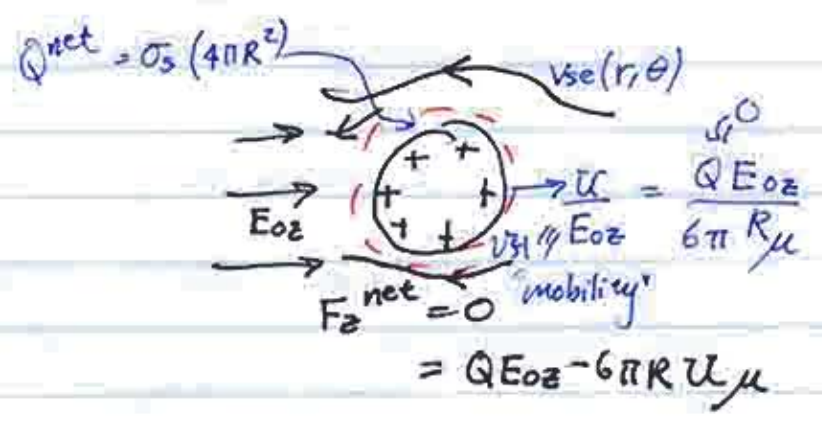 Q^net = σ_s (4πR²)
v_se(r, θ)
E_oz
+ + + + + +
U/E_oz = QE_oz/6πRμ
0
"mobility"
F_z^net = 0
= QE_oz - 6πRUμ